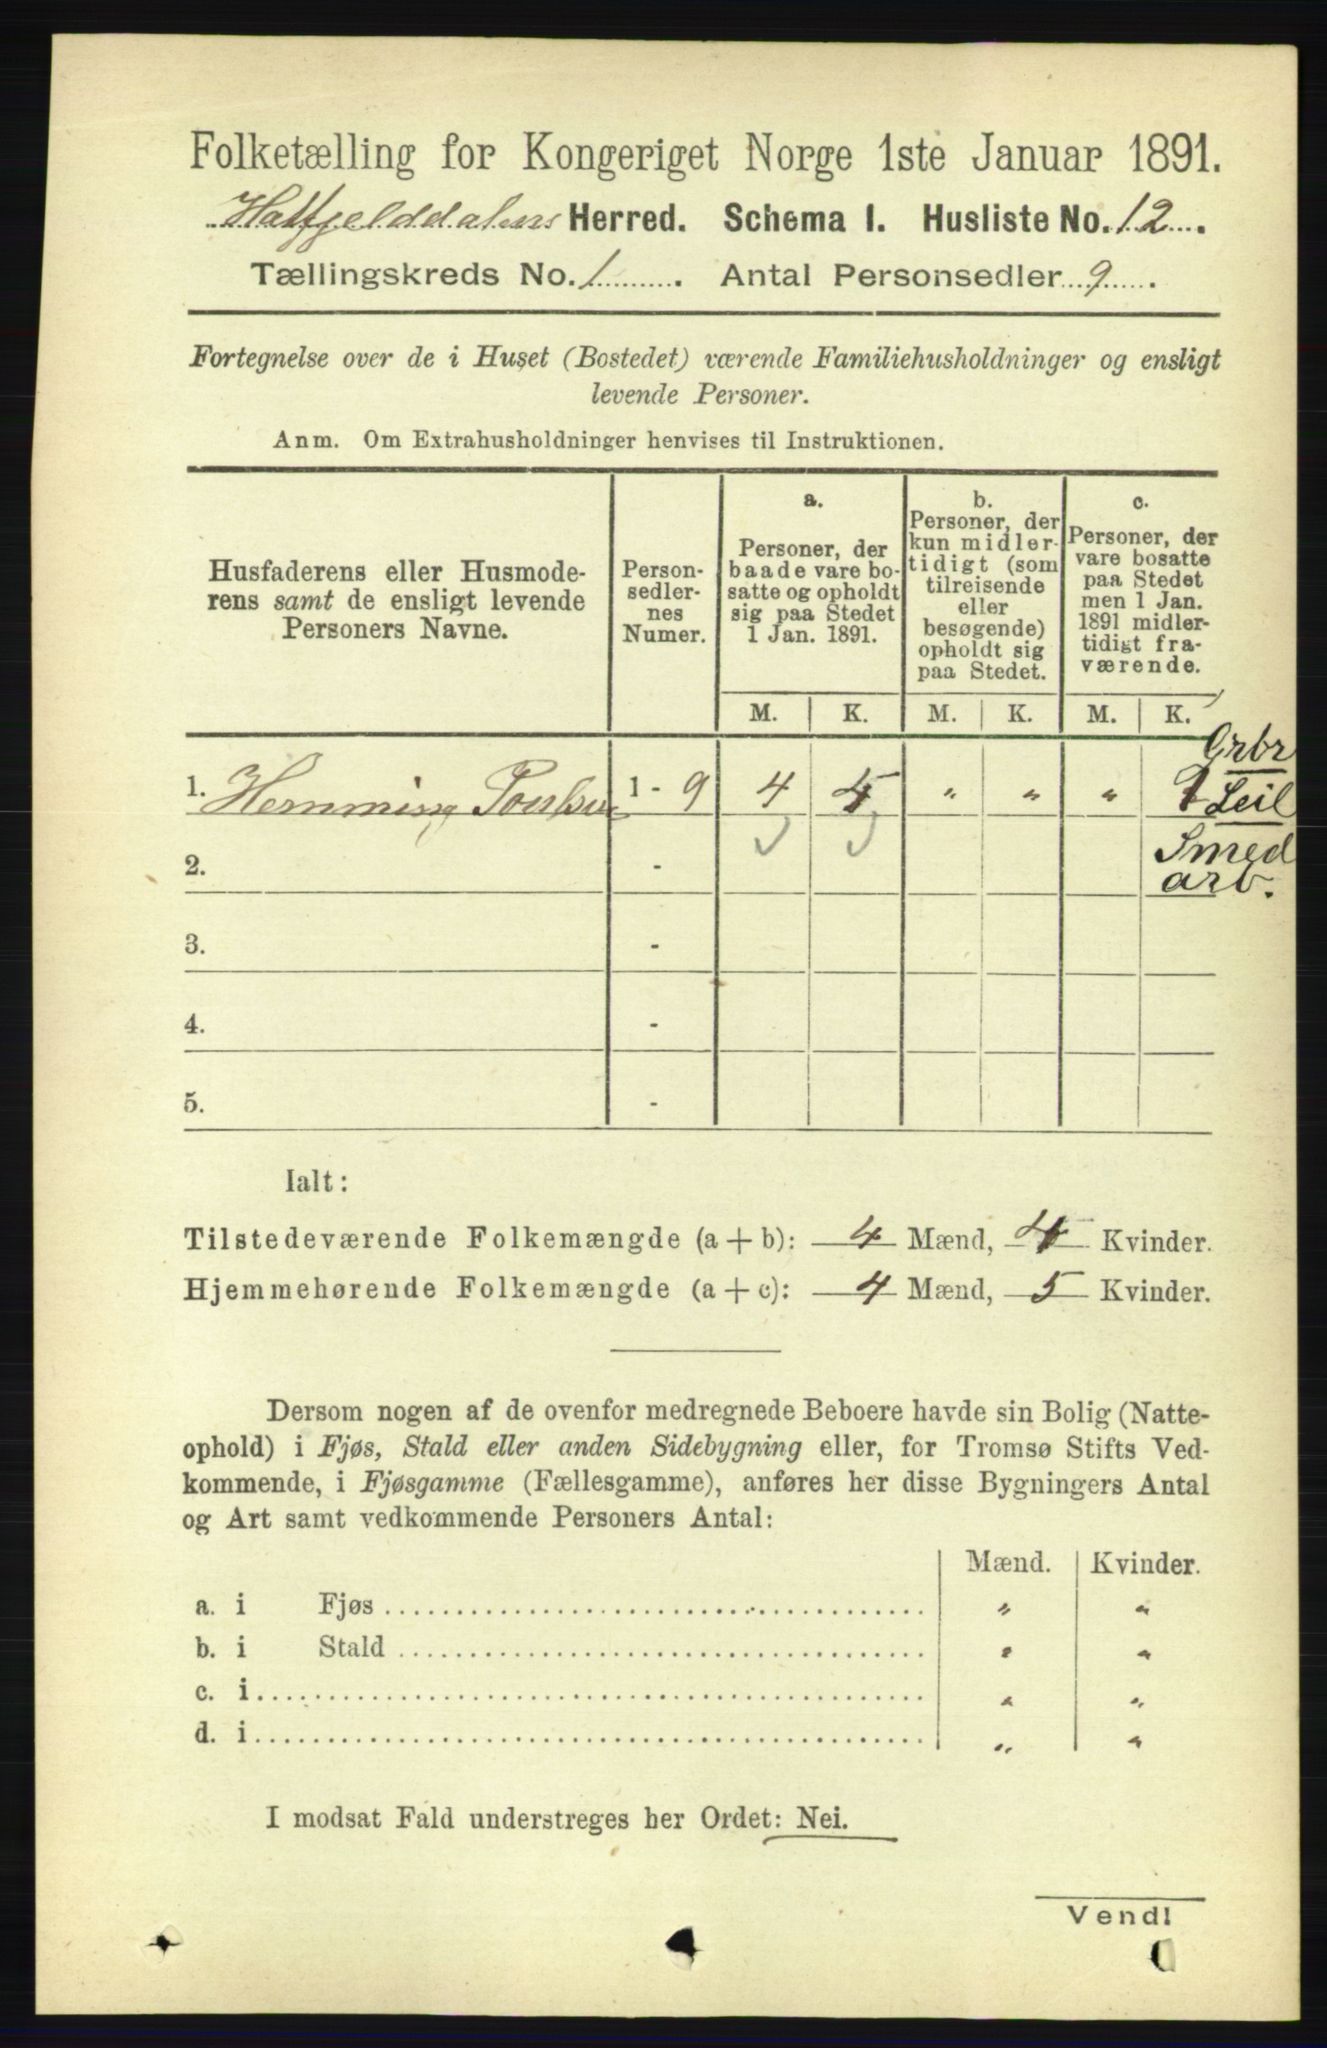 Folketælling for Kongeriget Norge 1ste Januar 1891.
Hatfjelddalens Herred. Schema I. Husliste No. 12.
Tællingskreds No. 1. Antal Personsedler 9.
Fortegnelse over de i Huset (Bostedet) værende Familiehusholdninger og ensligt
levende Personer.
Anm. Om Extrahusholdninger henvises til Instruktionen.
Husfaderens eller Husmode-
rens samt de ensligt levende
Personers Navne.
Person-
sedler-
nes
Numer.
a.
Personer, der
baade vare bo-
satte og opholdt
sig paa Stedet
1 Jan. 1891.
b.
Personer, der
kun midler-
tidigt (som
tilreisende
eller
besøgende)
opholdt sig
paa Stedet.
c.
Personer, der
vare bosatte
paa Stedet
men 1 Jan.
1891 midler-
tidigt fra-
værende.
M. K. M. K. M. K.
Grbr
1. Hemming 1 - 9 4 4 " " " 1 Leil
Smed
arb.
2. -
3. -
4. -
5. -
Ialt:
Tilstedeværende Folkemængde (a + b): 4 Mænd, 4 Kvinder.
Hjemmehørende Folkemængde (a + c): 4 Mænd, 5 Kvinder.
Dersom nogen af de ovenfor medregnede Beboere havde sin Bolig (Natte-
ophold) i Fjøs, Stald eller anden Sidebygning eller, for Tromsø Stifts Ved-
kommende, i Fjøsgamme (Fællesgamme), anføres her disse Bygningers Antal
og Art samt vedkommende Personers Antal:
Mænd. Kvinder.
a. i Fjøs " "
b. i Stald " "
c. i " "
d. i " "
I modsat Fald understreges her Ordet: Nei.
Vendl